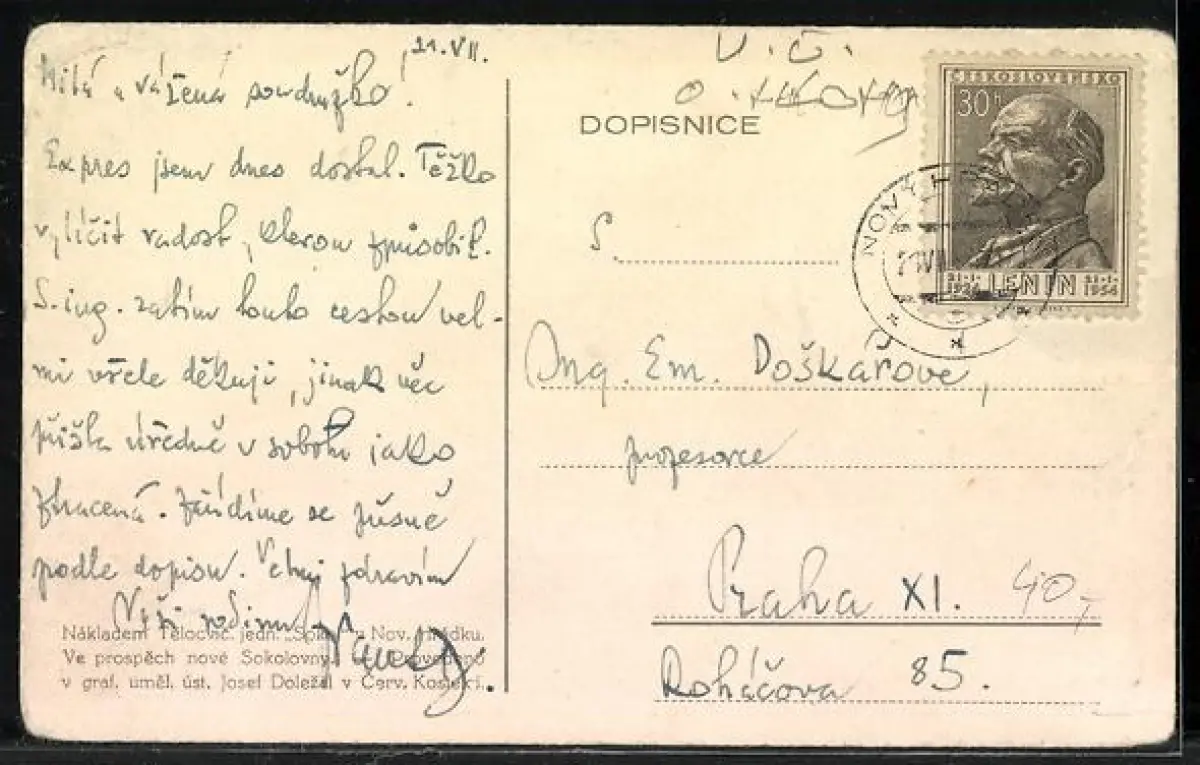 21.VII.
Milá a vážená soudružko!
Expres jsem dnes dostal. Těžko
vylíčit radost, kterou způsobil.
S. ing. zatím touto cestou vel-
mi vřele děkuji, jinak věc
příšla úředně v sobotu jako
ztracená. Zřídíme se přísně
podle dopisu.
zdravím
Vaši rodinu
Nákladem Tělocvič. jedn. „Sokol“ v Nov. Hrádku.
Ve prospěch nové Sokolovny. Provedeno
v graf. uměl. úst. Josef Doležal v Červ. Kostelci.
V. Č.
DOPISNICE
ČESKOSLOVENSKO
30 h
NOVÝ HR
21.VII
21.I. 1924 LENIN 21.I. 1954
S.
Ing. Em. Doškářové,
profesorce
Praha XI.
40,-
Roháčova 85.